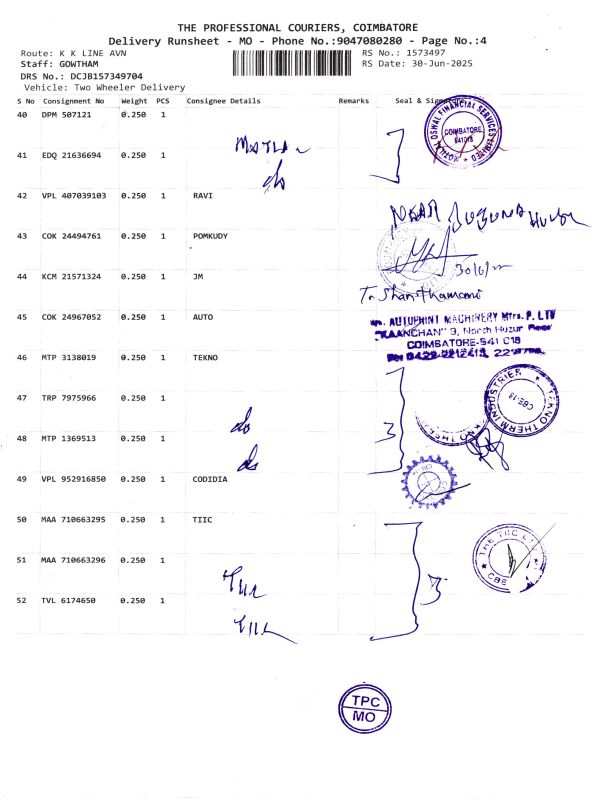 THE PROFESSIONAL COURIERS, COIMBATORE
Delivery Runsheet - MO - Phone No.:9047080280 - Page No.:4
Route: K K LINE AVN
RS No.: 1573497
Staff: GOWTHAM
RS Date: 30-Jun-2025
DRS No.: DCJB157349704
Vehicle: Two Wheeler Delivery
S No Consignment No Weight PCS Consignee Details Remarks Seal &
40 DPM 507121 0.250 1
OSWAL FINANCIAL SERVICES LIMITED
COIMBATORE
641018
41 EDQ 21636694 0.250 1
do
42 VPL 407039103 0.250 1 RAVI
43 COK 24494761 0.250 1 POMKUDY
44 KCM 21571324 0.250 1 JM
45 COK 24967052 0.250 1 AUTO
AUTOPRINT MACHINERY Mfrs. P. LTD
"KAANCHAN" 9, North Huzur Road
COIMBATORE-641 018
46 MTP 3138019 0.250 1 TEKNO
TEKNO THERM INDUSTRIES
CBE-18
47 TRP 7975966 0.250 1
do
3
48 MTP 1369513 0.250 1
do
49 VPL 952916850 0.250 1 CODIDIA
50 MAA 710663295 0.250 1 TIIC
51 MAA 710663296 0.250 1
CBE
3
52 TVL 6174650 0.250 1
TPC
MO